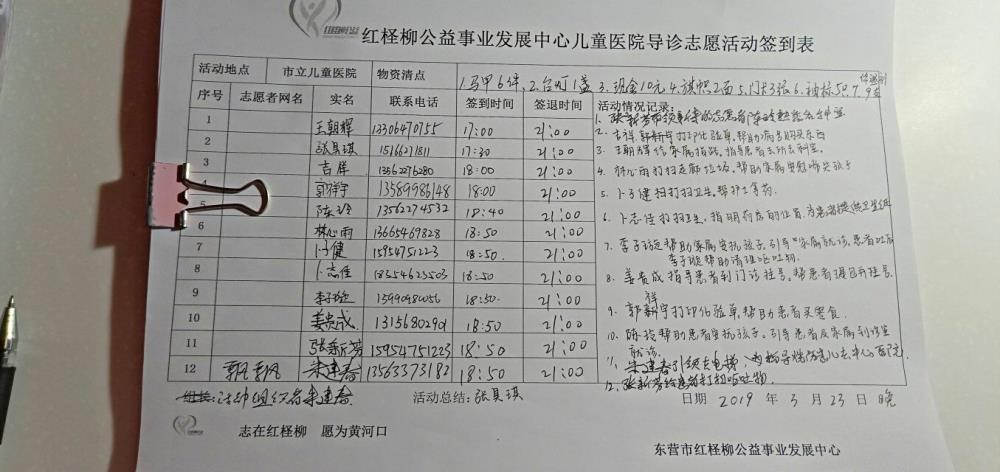 红柽柳公益事业发展中心儿童医院导诊志愿活动签到表
活动地点 市立儿童医院 物资清点 1.马甲6件,2.台灯1盏 3.现金10元 4.旗帜2面 5.门卡3张 6.袖标5只 7.
序号 志愿者网名 实名 联系电话 签到时间 签退时间 活动情况记录:
1 王朝辉 13306470755 17:00 21:00
2 张具琪 15166271811 17:30 21:00
3 吉祥 13562276280 18:00 21:00
郭祥宇 13589986148 18:00 21:00
5 陈玲 13562274532 18:40 21:00
6 林心雨 13665469828 18:50 21:00
7 卜子健 15954751223 18:50. 21:00
8 卜志佳 18354623503 18:50 21:00
9 李子璇 15990980056 18:50. 21:00
10 姜贵成 13156802901 18:50 21:00
11 张新芳 15954751223 18:50 21:00
12 朱建春 13563373182 18:50 21:00
2.吉祥 郭新宇打印化验单,帮助病号购买东西
3.王朝辉给家属指路,指导患者去所去科室.
4.林心雨打扫走廊垃圾,帮助家属安慰啼哭孩子
5.卜子健扫打扫卫生,帮护士
6.卜志佳打扫卫生.指明药房的位置,为患者提供卫生纸
7.李子璇帮助家属安抚孩子.引导家属就诊,患者呕吐
李子璇帮助清理呕吐物.
8.姜贵成指导患者到门诊挂号.帮患者
祥
9.郭新宇打印化验单.帮助患者买零食.
10.陈玲帮助患者安抚孩子.引导患者及家属到诊室
就诊.
11.朱建春引领去电梯,
12.张新芳给患者打扫呕吐物
活动组织者朱建春 活动总结:张具琪 日期 2019 年 3 月 23 日 晚
志在红柽柳 愿为黄河口
东营市红柽柳公益事业发展中心